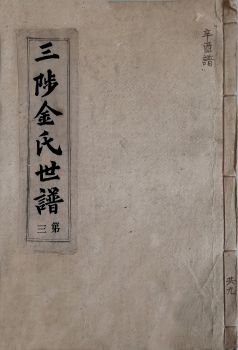 辛酉譜
共九
三陟金氏世譜
第三